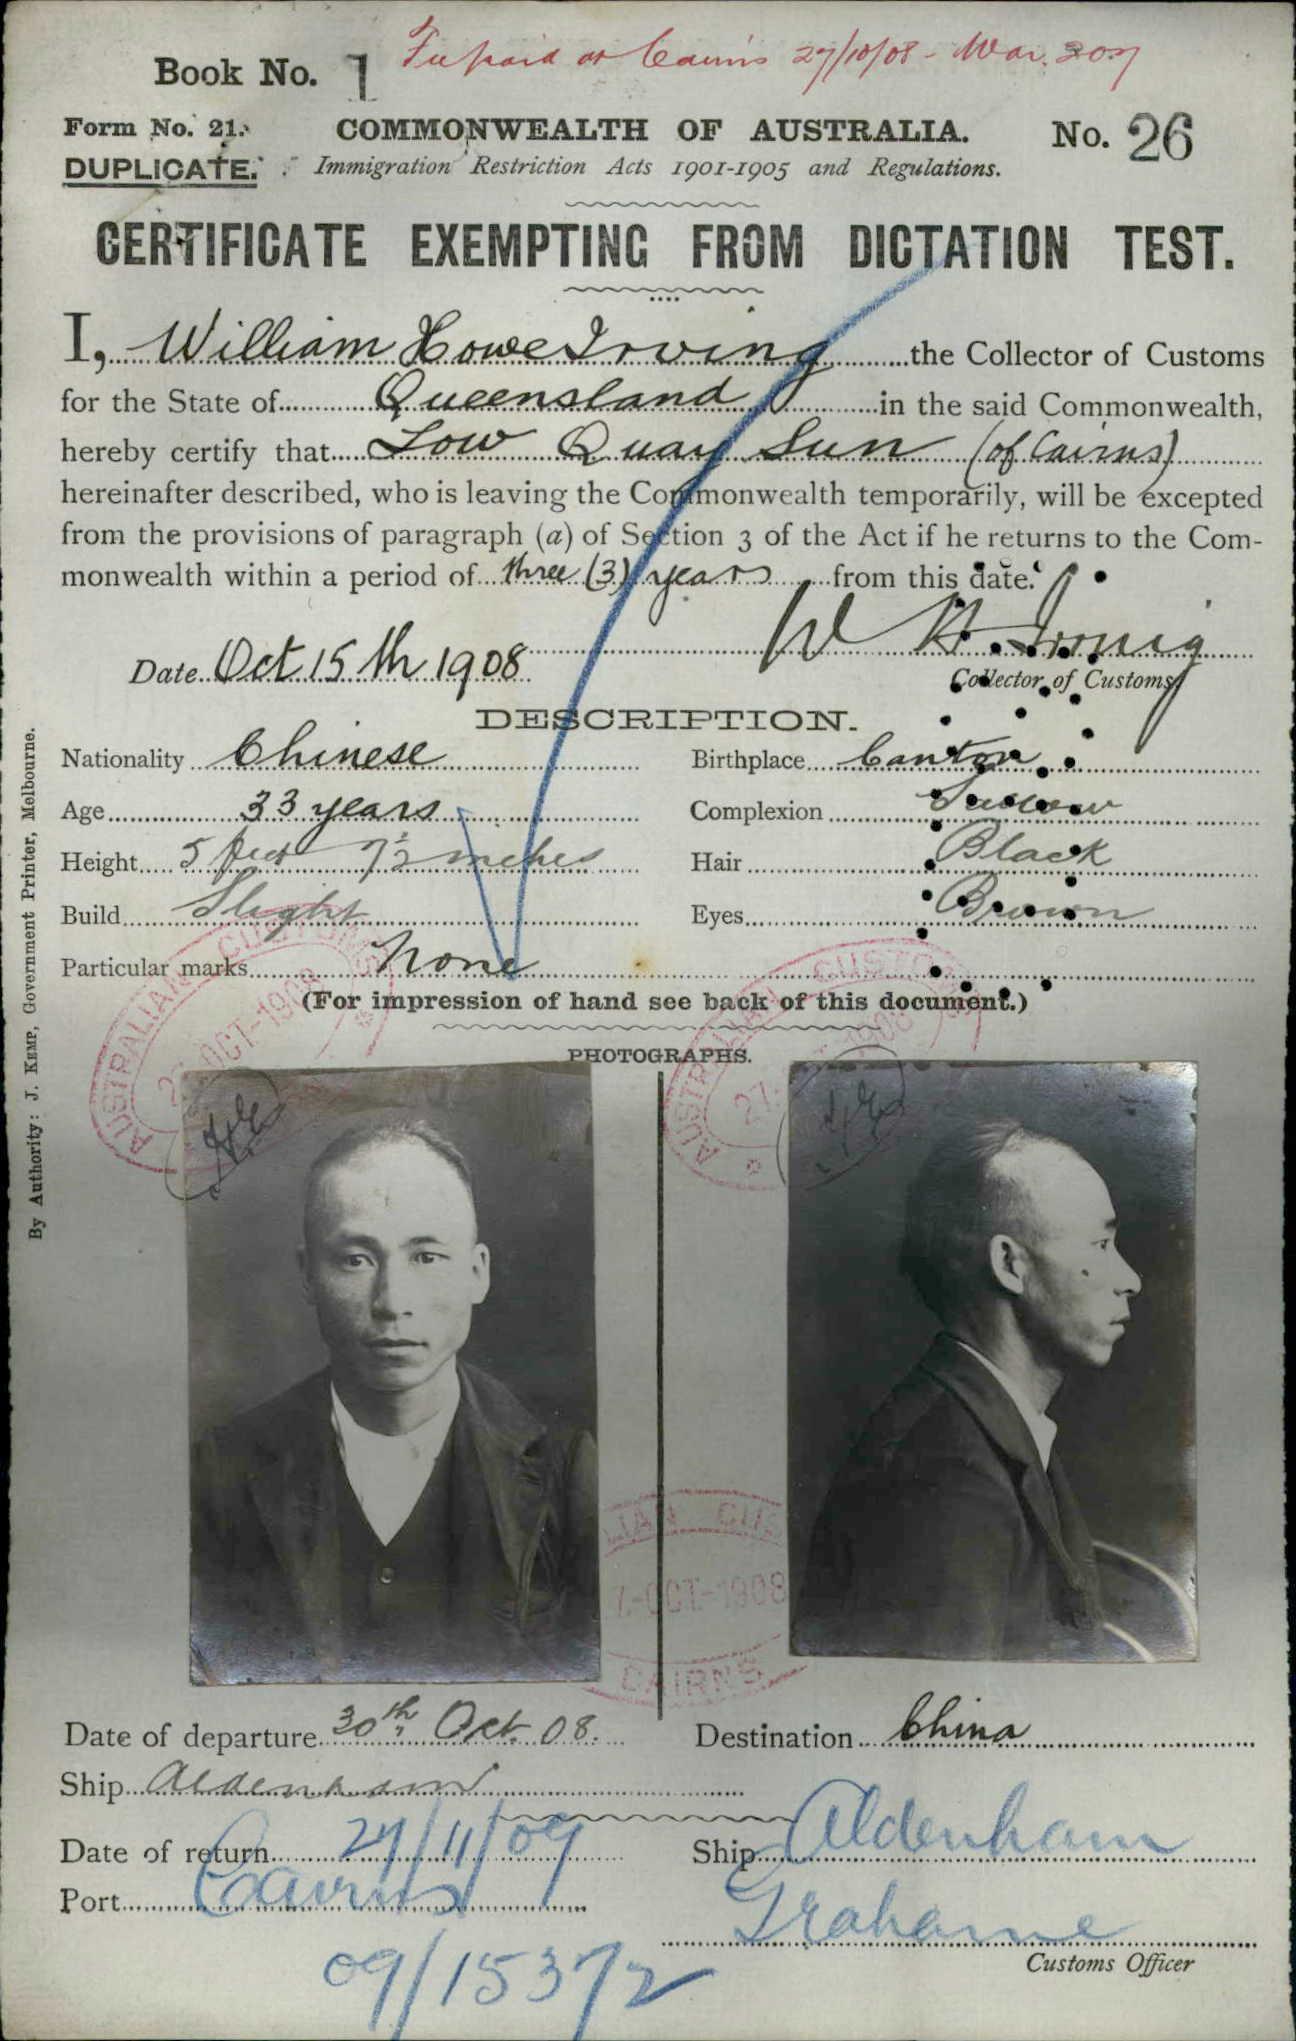 Book No. 1
Fee paid at Cairns 27/10/08 - War. 207
Form No. 21.
COMMONWEALTH OF AUSTRALIA.
No. 26
DUPLICATE.
Immigration Restriction Acts 1901-1905 and Regulations.
CERTIFICATE EXEMPTING FROM DICTATION TEST.
I, William Howe Irving the Collector of Customs
for the State of Queensland in the said Commonwealth,
hereby certify that Low Quay Sun (of Cairns)
hereinafter described, who is leaving the Commonwealth temporarily, will be excepted
from the provisions of paragraph (a) of Section 3 of the Act if he returns to the Com-
monwealth within a period of three (3) years from this date.
W H Irving
Date Oct 15th 1908
Collector of Customs
DESCRIPTION.
Nationality Chinese
Birthplace Canton
Age 33 years
Complexion Sallow
Height 5 feet 7½ inches
Hair Black
Build Slight
Eyes Brown
Particular marks None
(For impression of hand see back of this document.)
PHOTOGRAPHS.
AUSTRALIAN CUSTOMS
27 OCT-1908
AUSTRALIAN CUSTOMS
27 1908
LIAN CUS
7.-OCT.-1908
CAIRNS
By Authority: J. KEMP, Government Printer, Melbourne.
Date of departure 30th Oct. 08.
Destination China
Ship Aldenham
Date of return 27/11/09
Ship Aldenham
Port Cairns
Grahame
Customs Officer
09/15372